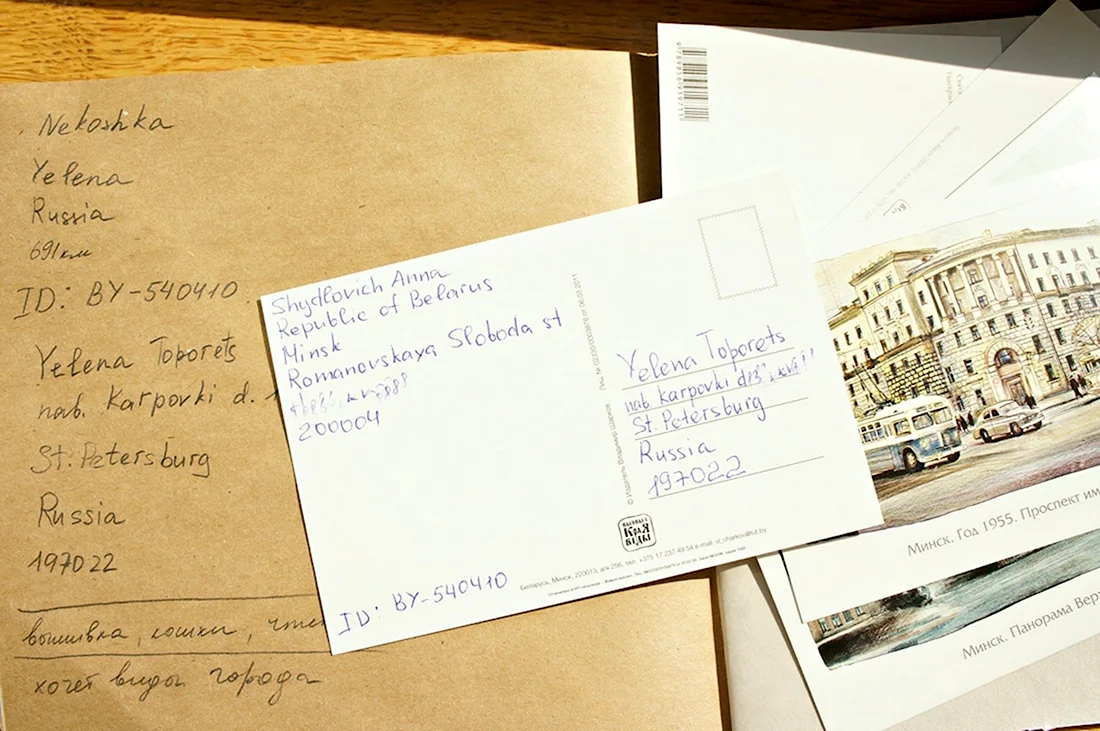 Nekoshka
Yelena
Russia
691км
ID: BY-540410
Yelena Toporets
nab. Karpovki d.
St. Petersburg
Russia
197022
вышивка, кошки,
хочет виды города
Shydlovich Anna
Republic of Belarus
Minsk
Romanovskaya Sloboda st
200004
ID: BY-540410
Yelena Toporets
nab. Karpovki
St. Petersburg
Russia
197022
КРАЯ
ВІДЫ
Беларусь, Минск, 220013, а/я 256, тел. +375 17 237 49 54 e-mail: vl_charkov@tut.by
Минск. Год 1955. Проспект им
Минск. Панорама Верх